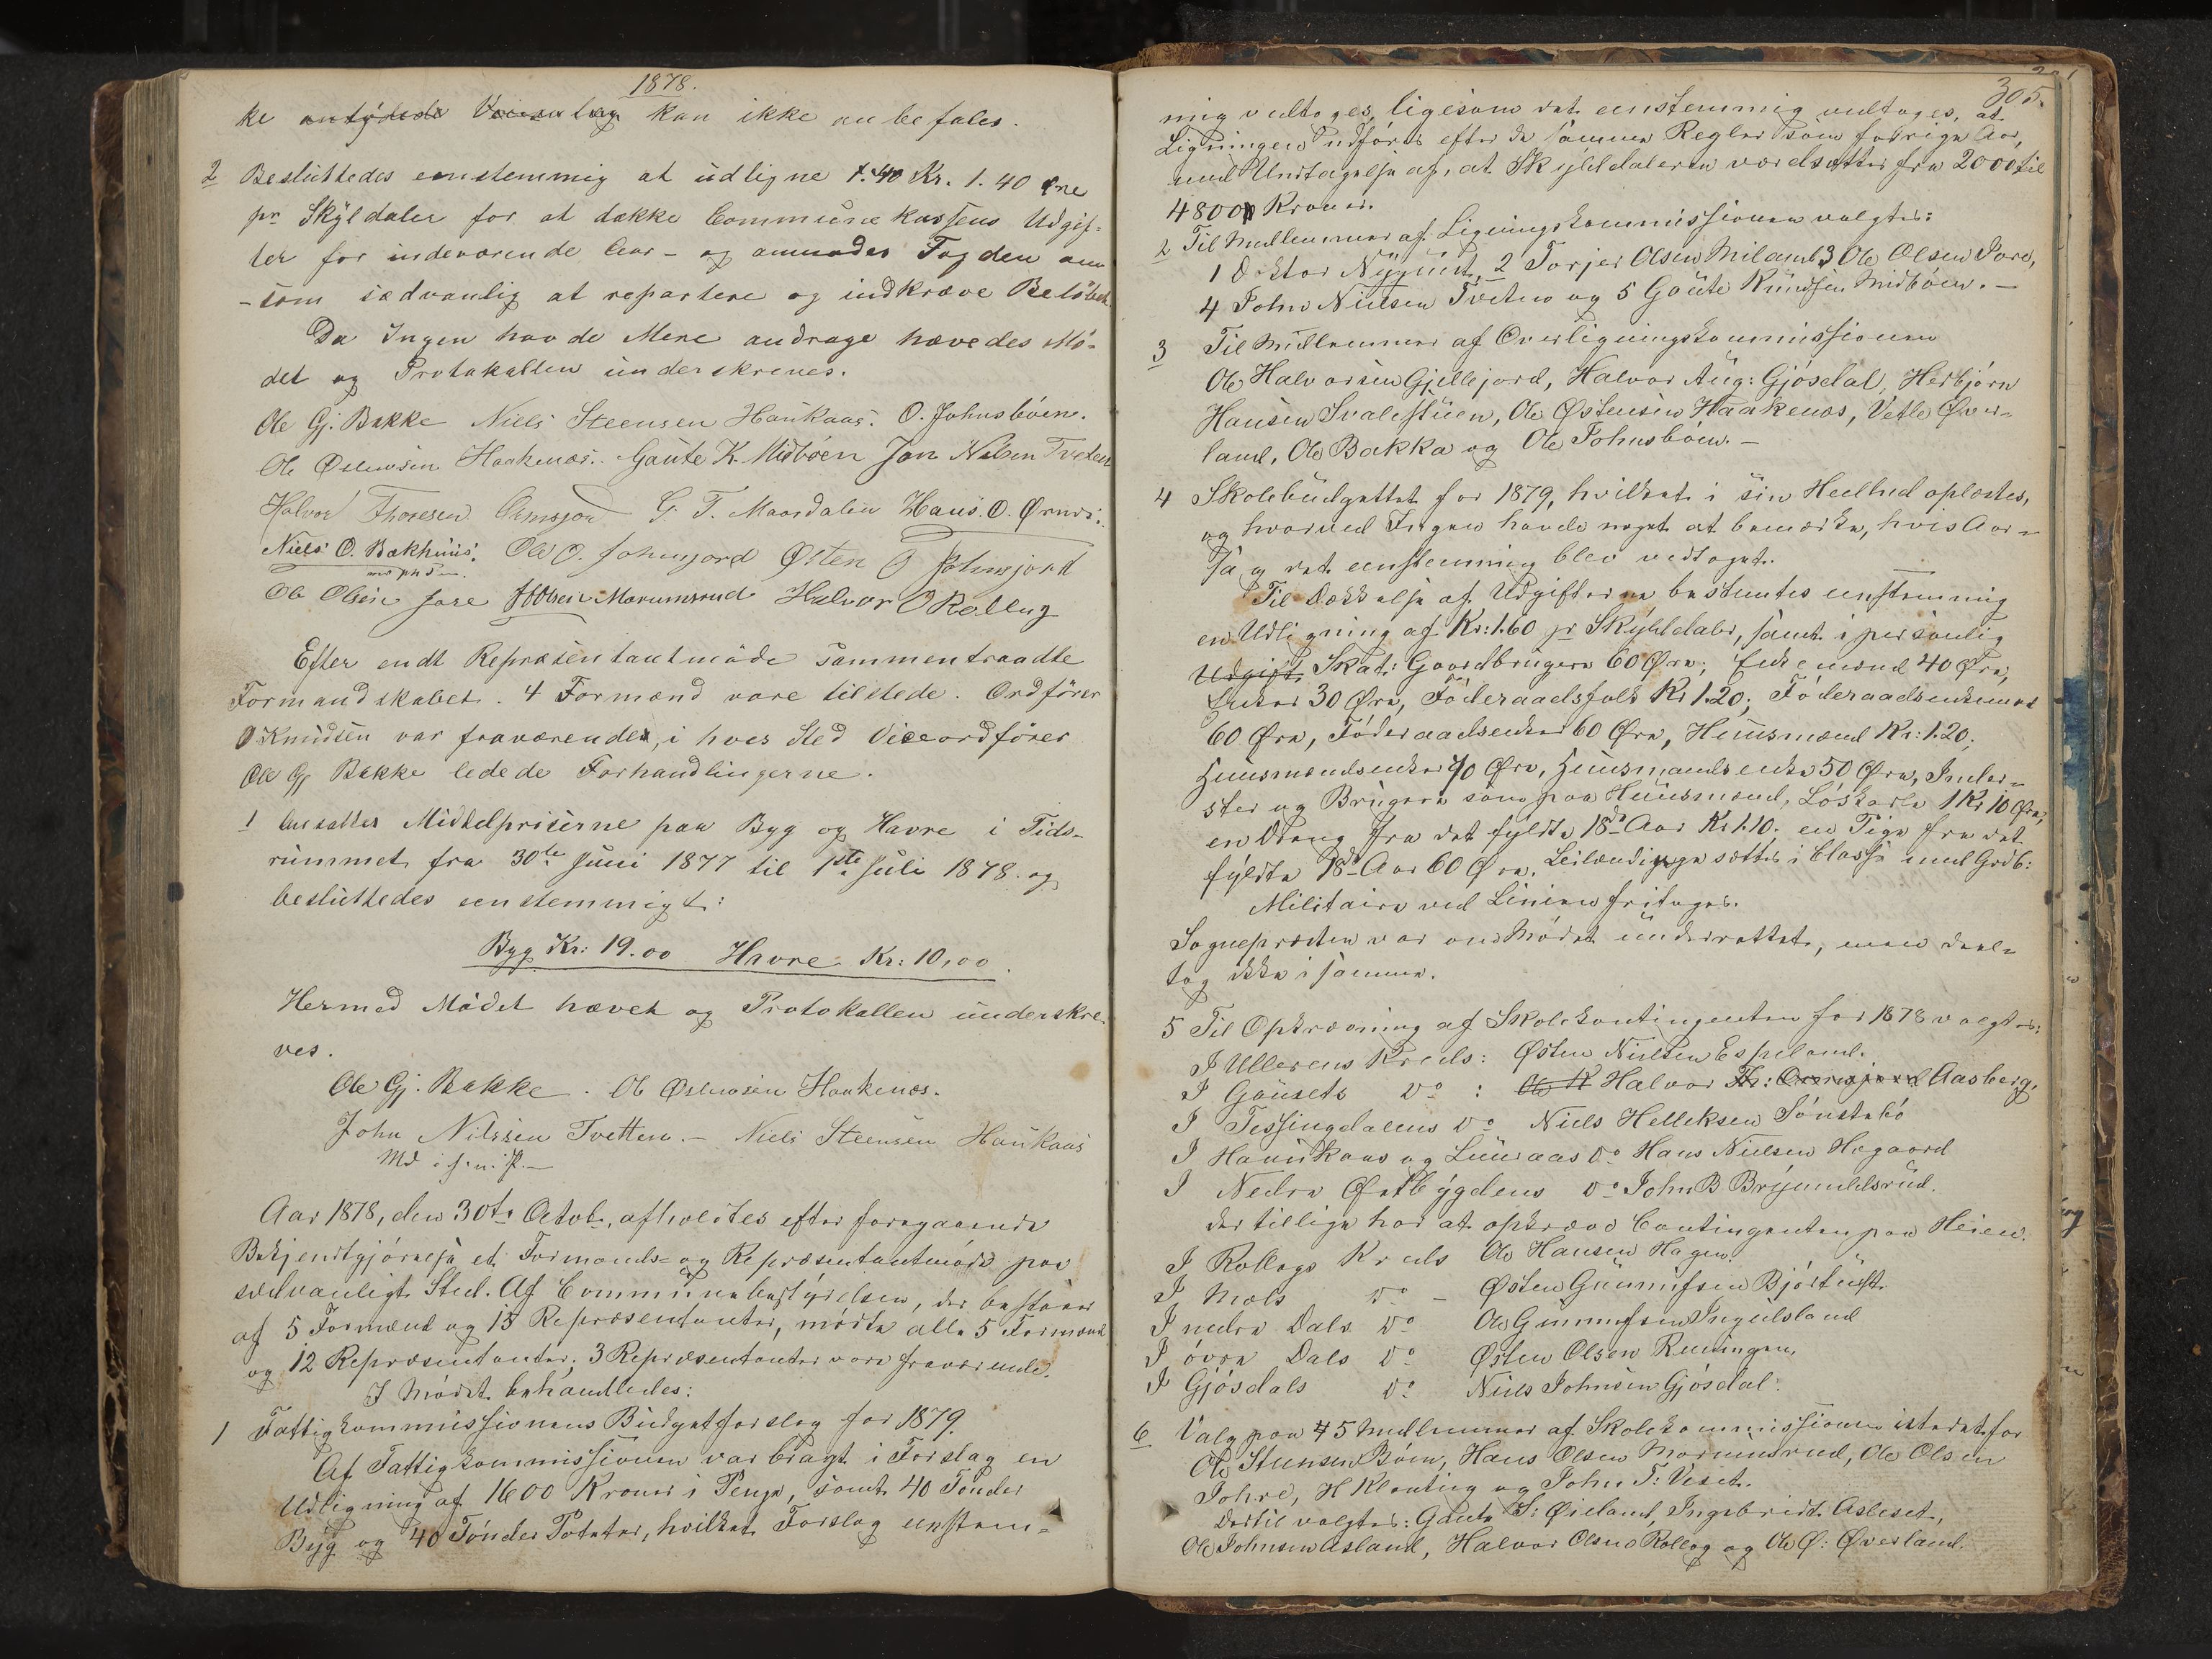 1878.
ke antydede Veianlæg kan ikke anbefales.
2 Besluttedes eenstemmig at udligne 1.40 Kr. 1.40 Øre
pr Skylddaler for at dække Communekassens Udgif-
ter for indeværende Aar - og anmodes Fogden om
- som sædvanlig at repartere og indkræve Beløbet.
Da Ingen havde Mere andrage hævedes Mö-
det og Protokollen underskreves.
Ole Gj. Bakke Niels Steensen Haukaas. O. Johnsböen.
Ole Østensen Haakenæs. Gaute K. Midböen Jon Nilsen Tveten
Halvor Thoresen Ormsjord G. T. Maardalen Hans. O. Ørnes.
Niels O. Bækhuus. Ole O. Johnsjord Østen O Johnsjord
med paa P.
Ole Olsen Jore HOlsen Morumsrud Halvor O Rollag
Efter endt Repræsentantmöde sammentraadte
Formandskabet. 4 Formænd vare tilstede. Ordförer
O Knudsen var fraværende, i hves Sted Viceordförer
Ole Gj Bakke ledede Forhandlingerne.
1 Ansattes Middelpriserne paa Byg og Havre i Tids-
rummet fra 30te Juni 1877 til 1ste Juli 1878. og
besluttedes eenstemmigt:
Byg Kr: 19.00 Havre Kr: 10,00.
Hermed Mödet hævet og Protokollen underskre-
ves.
Ole Gj. Bakke. Ole Østensen Haakenæs.
John Nilssen Tvetten. - Niels Steensen Haukaas
Md i h. n. P. -
Aar 1878, den 30te Octobr, afholdtes efter foregaaende
Bekjendtgjörelse et Formands- og Repræsentantmöde paa
sædvanligt Sted. Af Communebestyrelsen, der bestaaer
af 5 Formænd og 15 Repræsentanter, mödte alle 5 Formænd
og 12 Repræsentanter; 3 Repræsentanter vare fraværende.
I Mödet behandledes:
1 Fattigkommissionens Budgetforslag for 1879.
Af Fattigkommissionen var bragt i Forslag en
Udligning af 1600 Kroner i Penge, samt 40 Tönder
Byg og 40 Tönder Poteter, hvilket Forslag eenstem-
305.
mig vedtoges, ligesom det eenstemmig vedtoges, at
Ligningen udföres efter de samme Regler som forrige Aar,
med Undtagelse af, at Skylddaleren værdsættes fra 2000 til
4800 Kroner.
2 Til Medlemmer af Ligningskommissionen valgtes:
1 Doktor Nyquist, 2 Torjer Olsen Miland 3 Ole Olsen Jore,
4 John Nielsen Tveten og 5 Gaute Knudsen Midböen. -
3 Til Medlemmer af Overligningskommissionen
Ole Halvorsen Gjellejord, Halvor Aug: Gjösdal, Herbjörn
Hansen Svalestuen, Ole Østensen Haakenæs, Vetle Øver-
land, Ole Bakka og Ole Johnsböen. -
4 Skolebudgettet for 1879, hvilket i sin Heelhed oplæstes,
og hvorved Ingen havde noget at bemærke, hvis Aar-
sag det eenstemmig blev vedtaget.
Til Dækkelse af Udgifterne bestemtes eenstemmig
en Udligning af Kr: 1.60 pr Skylddaler, samt i personlig
Udgift. Skat: Gaardbrugere 60 Øre; Enkemænd 40 Øre;
Enker 30 Øre, Föderaadsfolk Kr 1.20; Föderaadsenkemænd
60 Øre, Föderaadsenker 60 Øre, Huusmænd Kr: 1.20;
Huusmandsenker 70 Øre, Huusmands enke 50 Øre, Inder-
ster og Brugere som paa Huusmænd, Löskarle 1 Kr 10 Øre,
en Dreng fra det fyldte 18de Aar Kr 1.10. en Pige fra det
fyldte 18de Aar 60 Øre. Leilændingene sættes i Classe med Grdb:
Militaire ved Linien fritages.
Sognepresten var om Mödet underrettet, men deel-
tog ikke i samme.
5 Til Opkrævning af Skolekontingenten for 1878 valgtes:
I Ullerens Kreds: Østen Nielsen Espeland.
I Gausets do : Ole K Halvor Th: Ormsjord Aasberg,
I Tessungdalens do Niels Helleksen Sönstebö
I Haukaas og Luraas do Hans Nielsen Hegaard
I Nedre Østbygdens do John B Brynildsrud.
der tillige har at opkræve Contingenten paa Heien.
I Rollags Kreds Ole Hansen Hagen.
I Mæls do - Østen Gunnufsen Bjørtuft
I nedre Dals do Ole Gunnufsen Ingulsland
I övre Dals do Østen Olsen Reiningen,
I Gjösdals do Niels Johnsen Gjösdal.
6 Valg paa 5 Medlemmer af Skolekommissionen istedetfor
Ole Steensen Böen, Hans Olsen Morumsrud, Ole Olsen
Johre, H Klonteig og John T: Veset.
Dertil valgtes: Gaute S: Øieland, Ingebreidt Asleset,
Ole Johnsen Asland, Halvor Olsen Rollag og Ole Ø: Øverland.